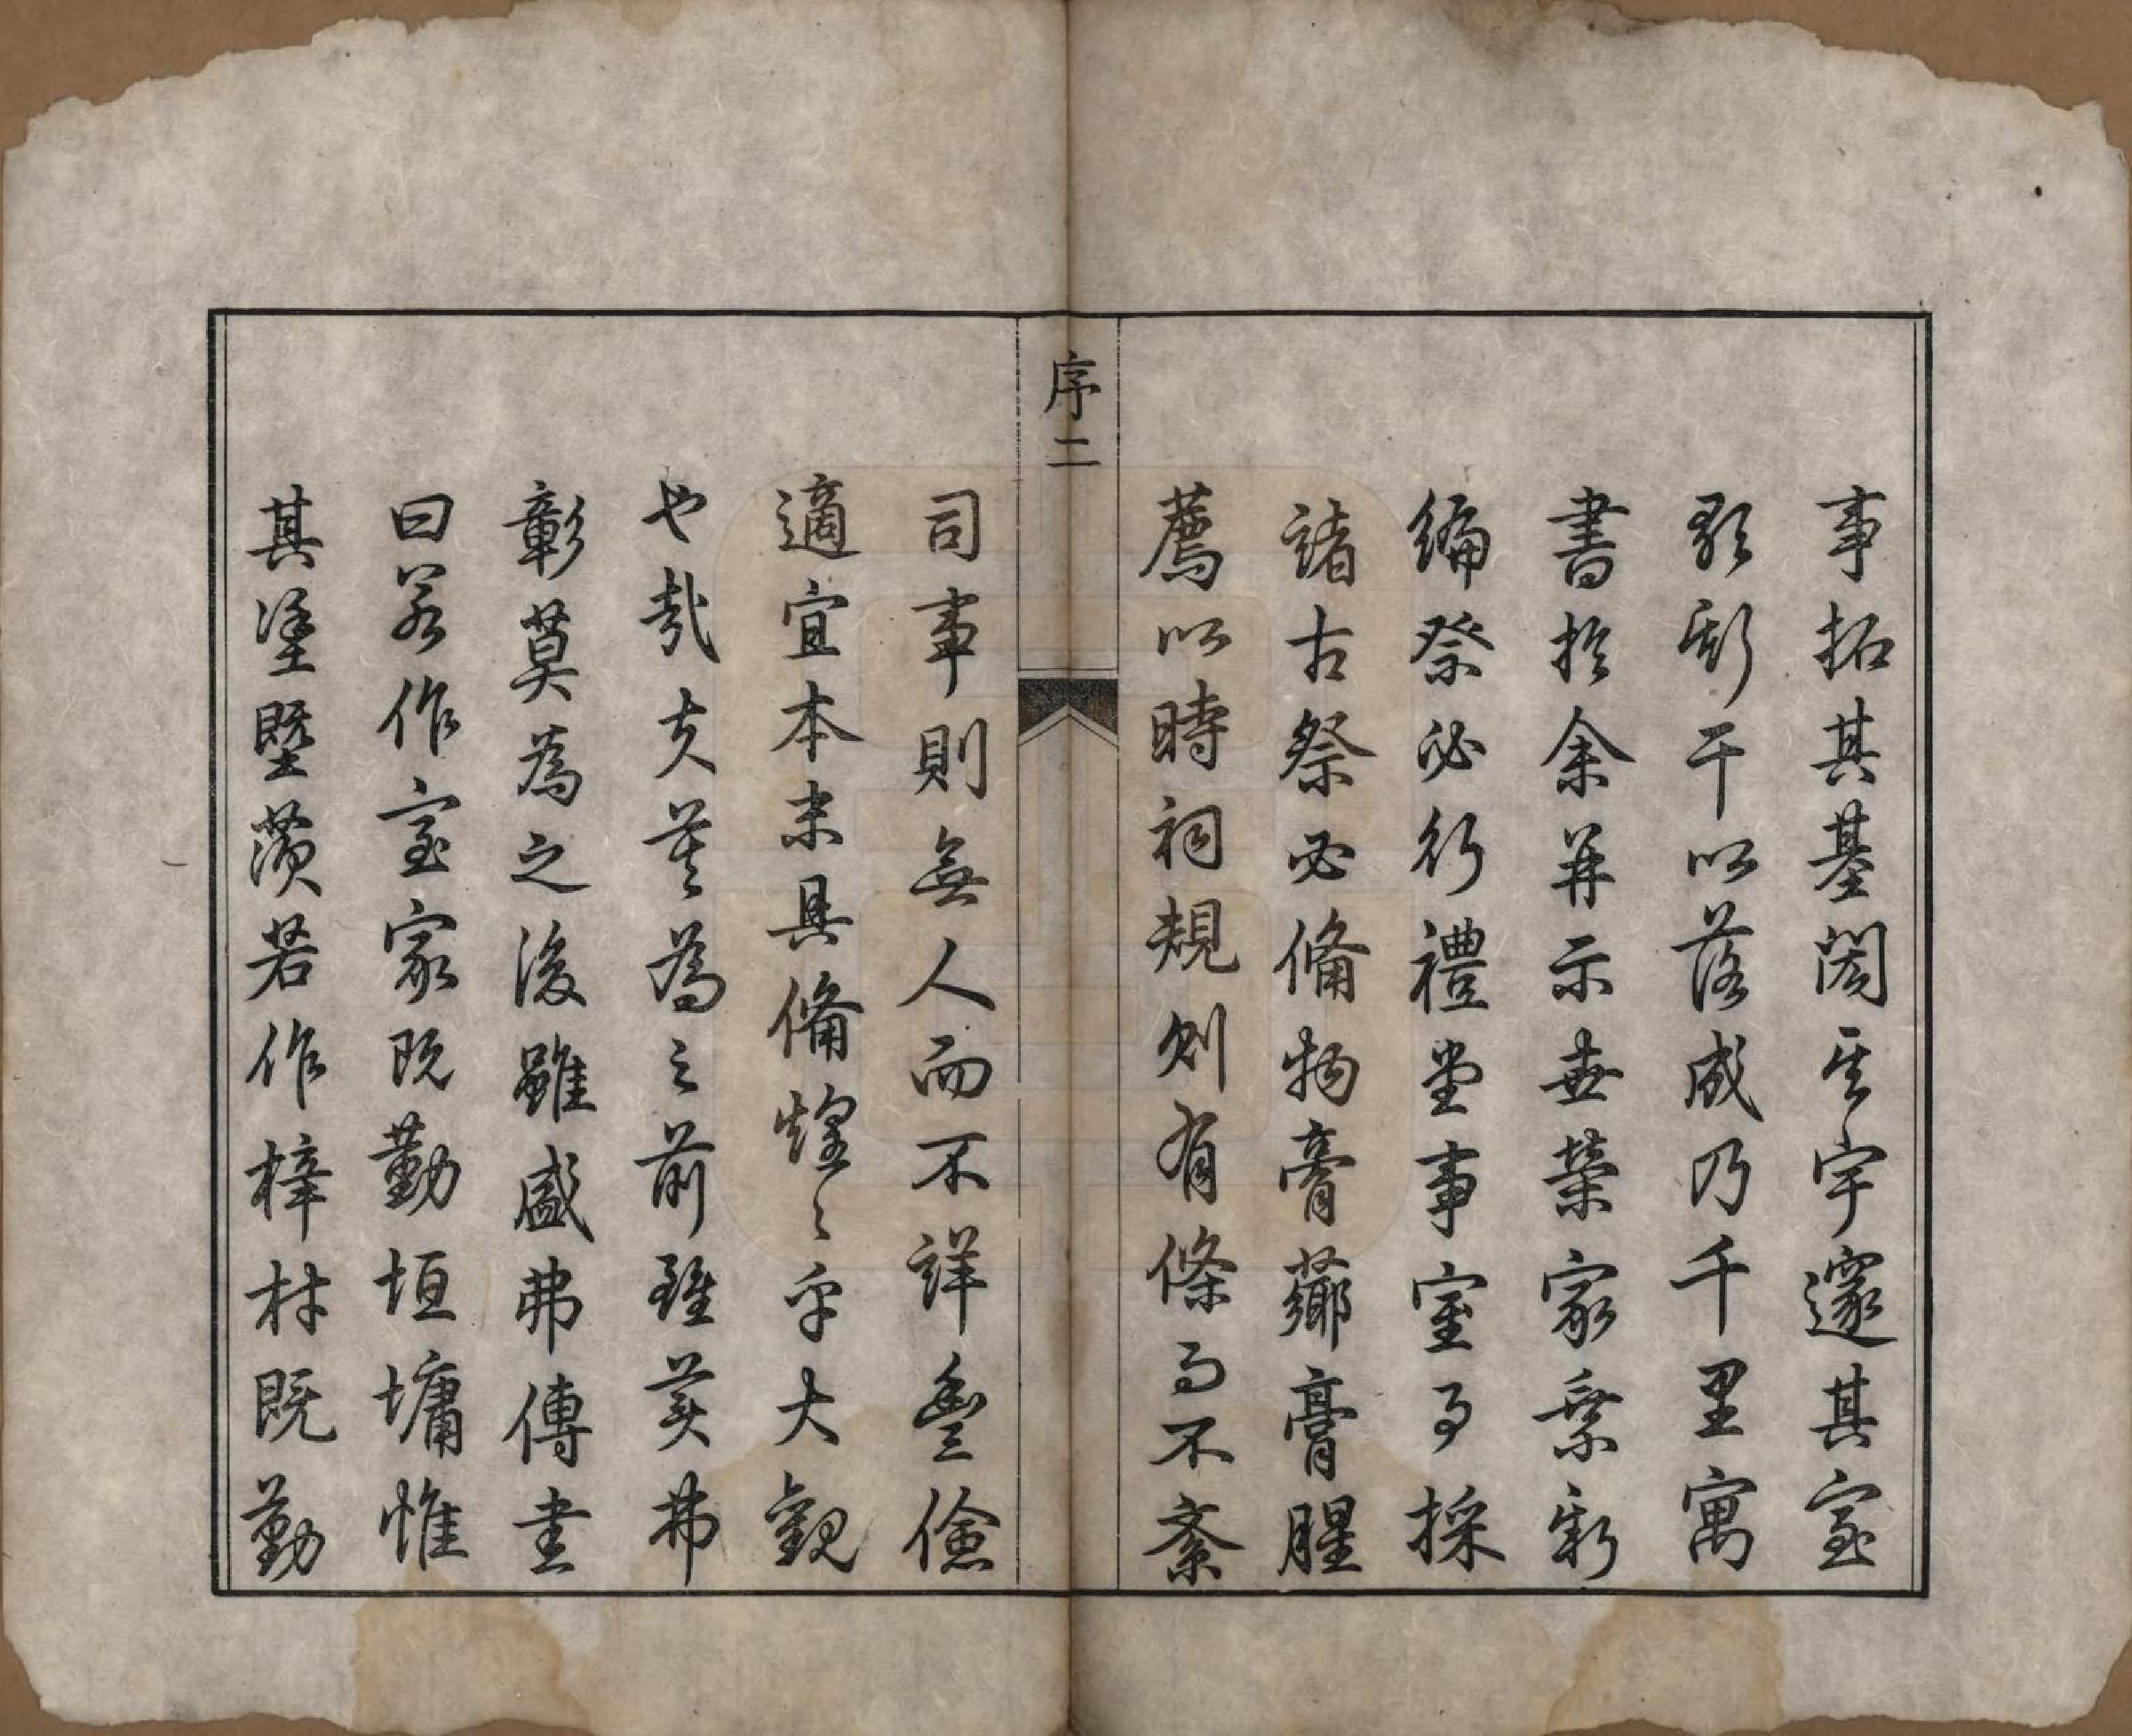 事拓其基閎其宇邃其室
影斯干以落成乃千里寓
書於余并示世榮家乘新
編祭必行禮堂事室事採
諸古祭必備物膏薌膏腥
薦以時祠規則有條而不紊
序二
司事則無人而不詳豐儉
適宜本末具備煌〻乎大觀
也哉夫莫為之前雖美弗
彰莫為之後雖盛弗傳書
曰若作室家既勤垣墉惟
其塗塈茨若作梓材既勤